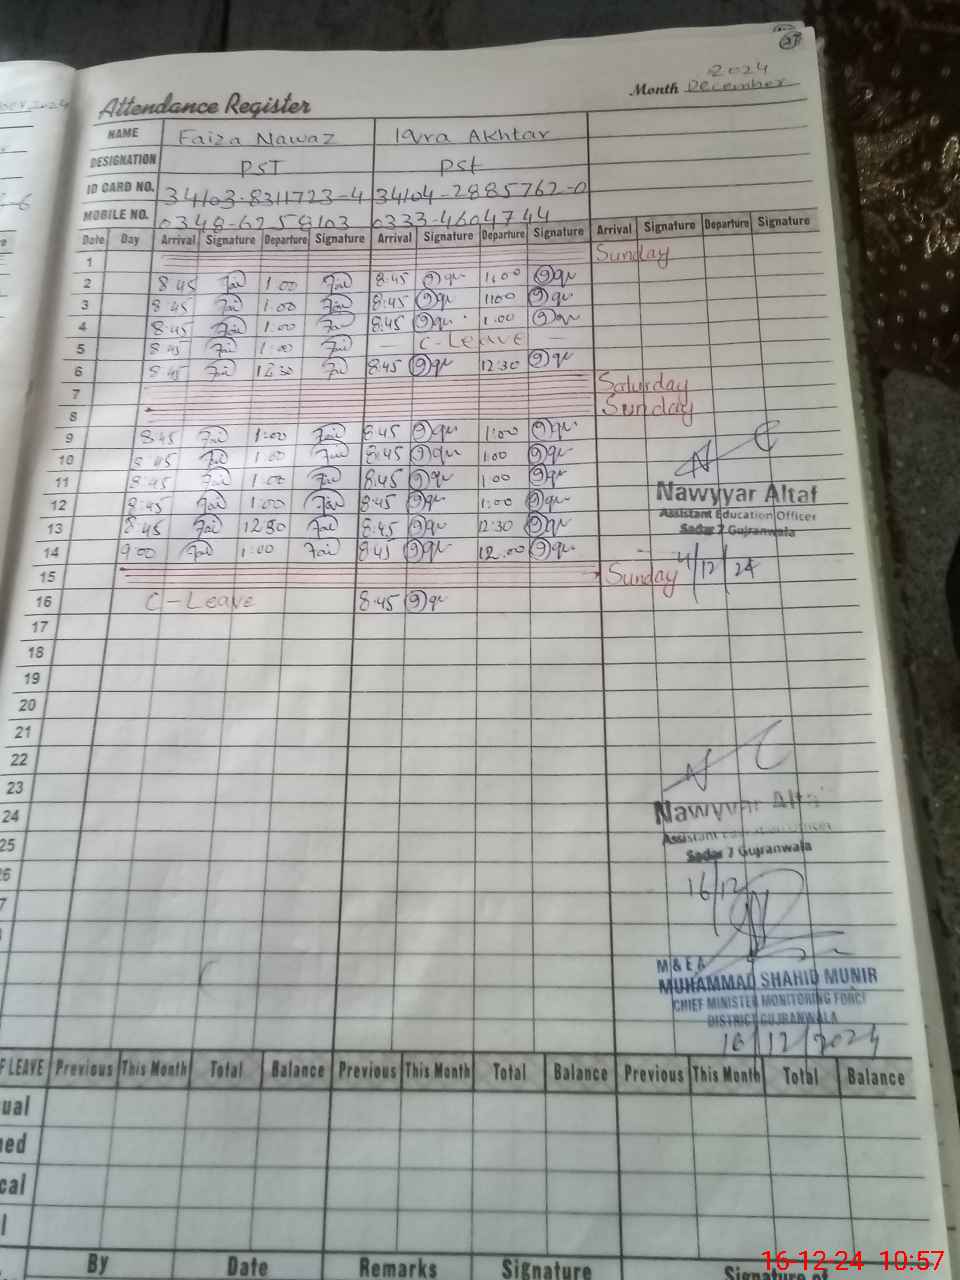 27
2024
Attendance Register
Month December
NAME Faiza Nawaz Iqra Akhtar
DESIGNATION PST Pst
ID CARD NO. 34103-8311723-4 34104-2885762-0
MOBILE NO. 0348-6258103 0333-4604744
Date Day Arrival Signature Departure Signature Arrival Signature Departure Signature Arrival Signature Departure Signature
1 Sunday
2 8:45 Fai 1:00 Fai 8:45 1:00
3 8:45 Fai 1:00 Fai 8:45 1:00
4 8:45 Fai 1:00 Fai 8:45 1:00
5 8:45 Fai 1:00 Fai — C-Leave —
6 8:45 Fai 12:30 Fai 8:45 12:30
7 Saturday
8 Sunday
9 8:45 Fai 1:00 Fai 8:45 1:00
10 8:45 Fai 1:00 Fai 8:45 1:00
11 8:45 Fai 1:00 Fai 8:45 1:00
12 8:45 Fai 1:00 Fai 8:45 1:00
Nawyyar Altaf
Assistant Education Officer
Sadar 7 Gujranwala
13 8:45 Fai 12:30 Fai 8:45 12:30
14 9:00 Fai 1:00 Fai 8:45 12:00
15 Sunday
4/12/24
16 C-Leave 8:45
17
18
19
20
21
22
23
24
Nawyyar Altaf
Assistant Education Officer
Sadar 7 Gujranwala
25
26
16/12
M & E A
MUHAMMAD SHAHID MUNIR
CHIEF MINISTER MONITORING FORCE
DISTRICT GUJRANWALA
16/12/2024
F LEAVE Previous This Month Total Balance Previous This Month Total Balance Previous This Month Total Balance
ual
ned
cal
l
By Date Remarks Signature Signature of
16-12-24 10:57